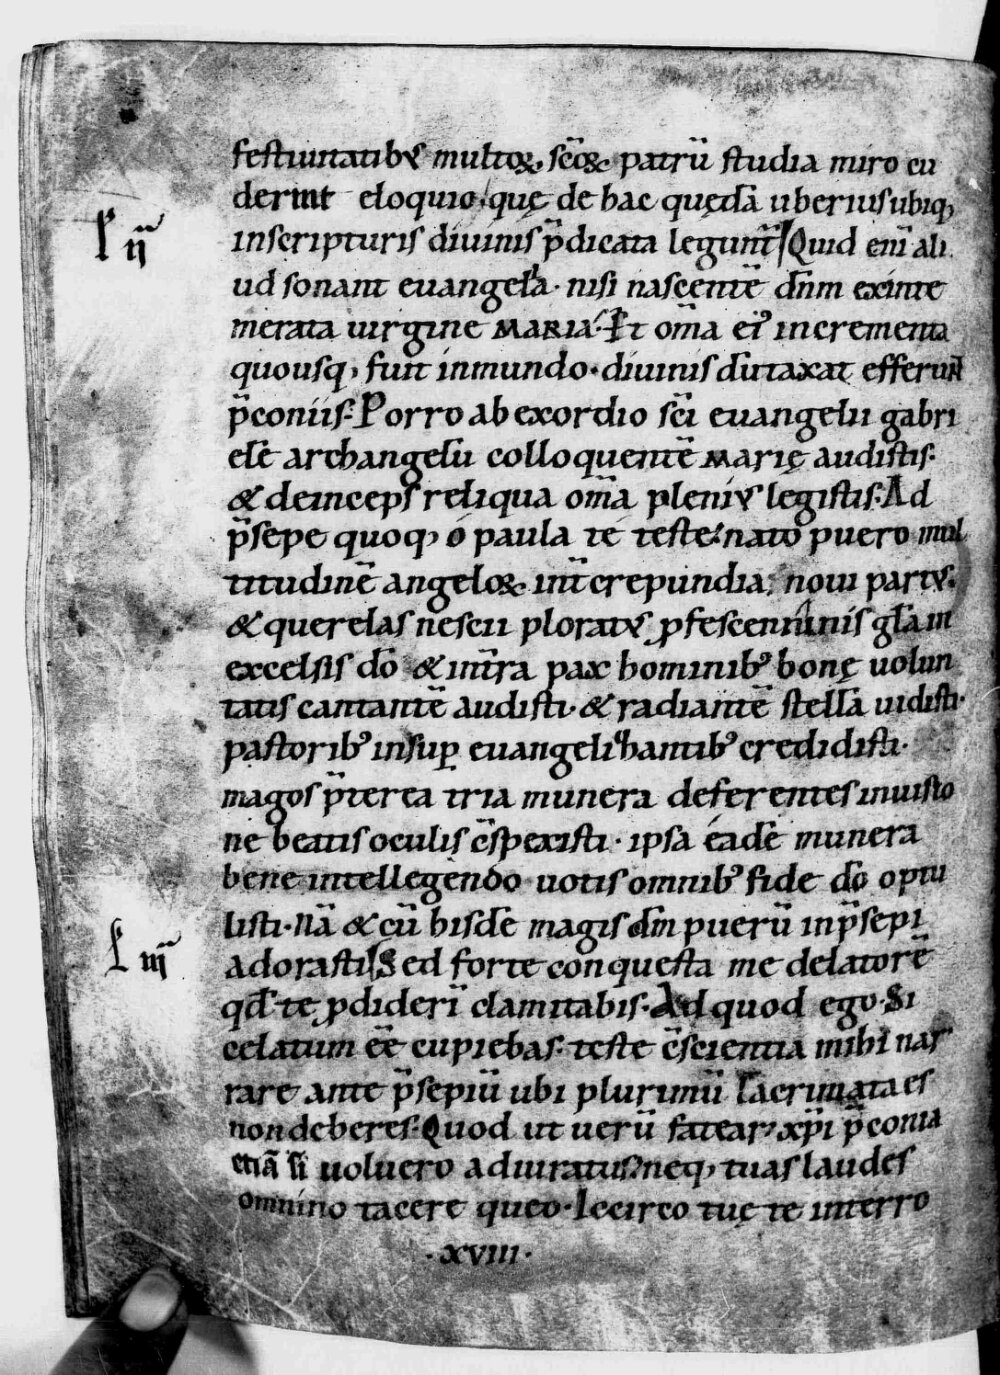 festiuitatibꝰ multoꝝ scōꝝ patrū studia miro cu
derint eloquio, quę de hac quędā uberius ubiqꝫ
in scripturis diuinis p̄dicata leguntˉ Quid eni᷑ ali
ł iī
ud sonant euangelia · nisi nascentē dn̄m ex inte
merata uirgine MARIA· Et om̄a eiꝰ incrementa
quousqꝫ fuit in mundo · diuinis dūtaxat efferunt̄
p̄coniis· Porro ab exordio sc̄i euangelii gabri
elē archangelū colloquentē MARIĘ audistis·
& deinceps reliqua om̄a pleniꝰ legistis· Ad
p̄sepe quoqꝫ ó paula té teste· nato puero mul
titudinē angeloꝝ int̄ crepundia, noui partꝰ·
& querelas nescii ploratꝰ ꝓ fescenninis gl̄a in
excelsis dō & in t̄ra pax hominibꝰ bonę uolun
tatis cantantē audisti · & radiantē stellā uidisti·
pastoribꝰ insuꝑ euangelizantibꝰ credidisti·
magos p̄terea tria munera deferentes inuisto
ne beatis oculis c̄spexisti · ipsa éadē munera
bene intellegendo uotis omnibꝰ fide dō optu
listi · nā & cū hisdē magis dn̄m puerū in p̄sepi
adorasti Sed forte conquesta me delatorē
ł iiī
qd̄ te ꝓdiderī clamitabis· Ad quod ego· Si
celatum eē cupiebas· teste c̄scientia mihi nar
rare ante p̄sepiū ubi plurimū lacrimata es
non deberes· Quod ut uerū fatear, xp̄i p̄conia
etiā si uoluero adiuratus neqꝫ tuas laudes
omnino tacere queo· Iccirco tuę te interro
· XVIII ·